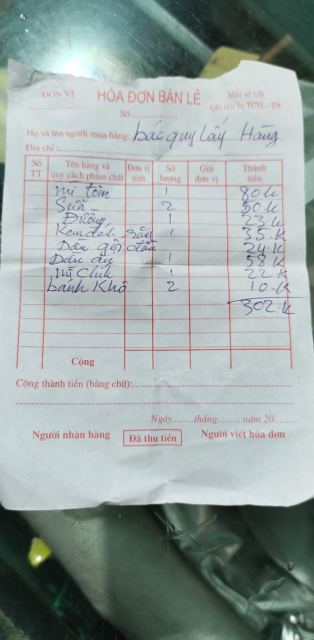 ĐƠN VỊ HÓA ĐƠN BÁN LẺ Mẫu số 1/B
Số:
Họ và tên người mua hàng: bác quy lấy Hàng
Địa chỉ:
Số TT Tên hàng và quy cách phẩm chất Đơn vị tính Số lượng Giá đơn vị Thành tiền
mì tôm 1 80k
Sữa 2 50k
Đường 1 23k
Kem đánh răng 1 35k
Dầu gội đầu 24k
Dầu ăn 1 58k
mì Chính 1 22k
bánh Khô 2 10k
302k
Cộng
Cộng thành tiền (bằng chữ):
Ngày.........tháng.........năm 20.......
Người nhận hàng Đã thu tiền Người viết hóa đơn